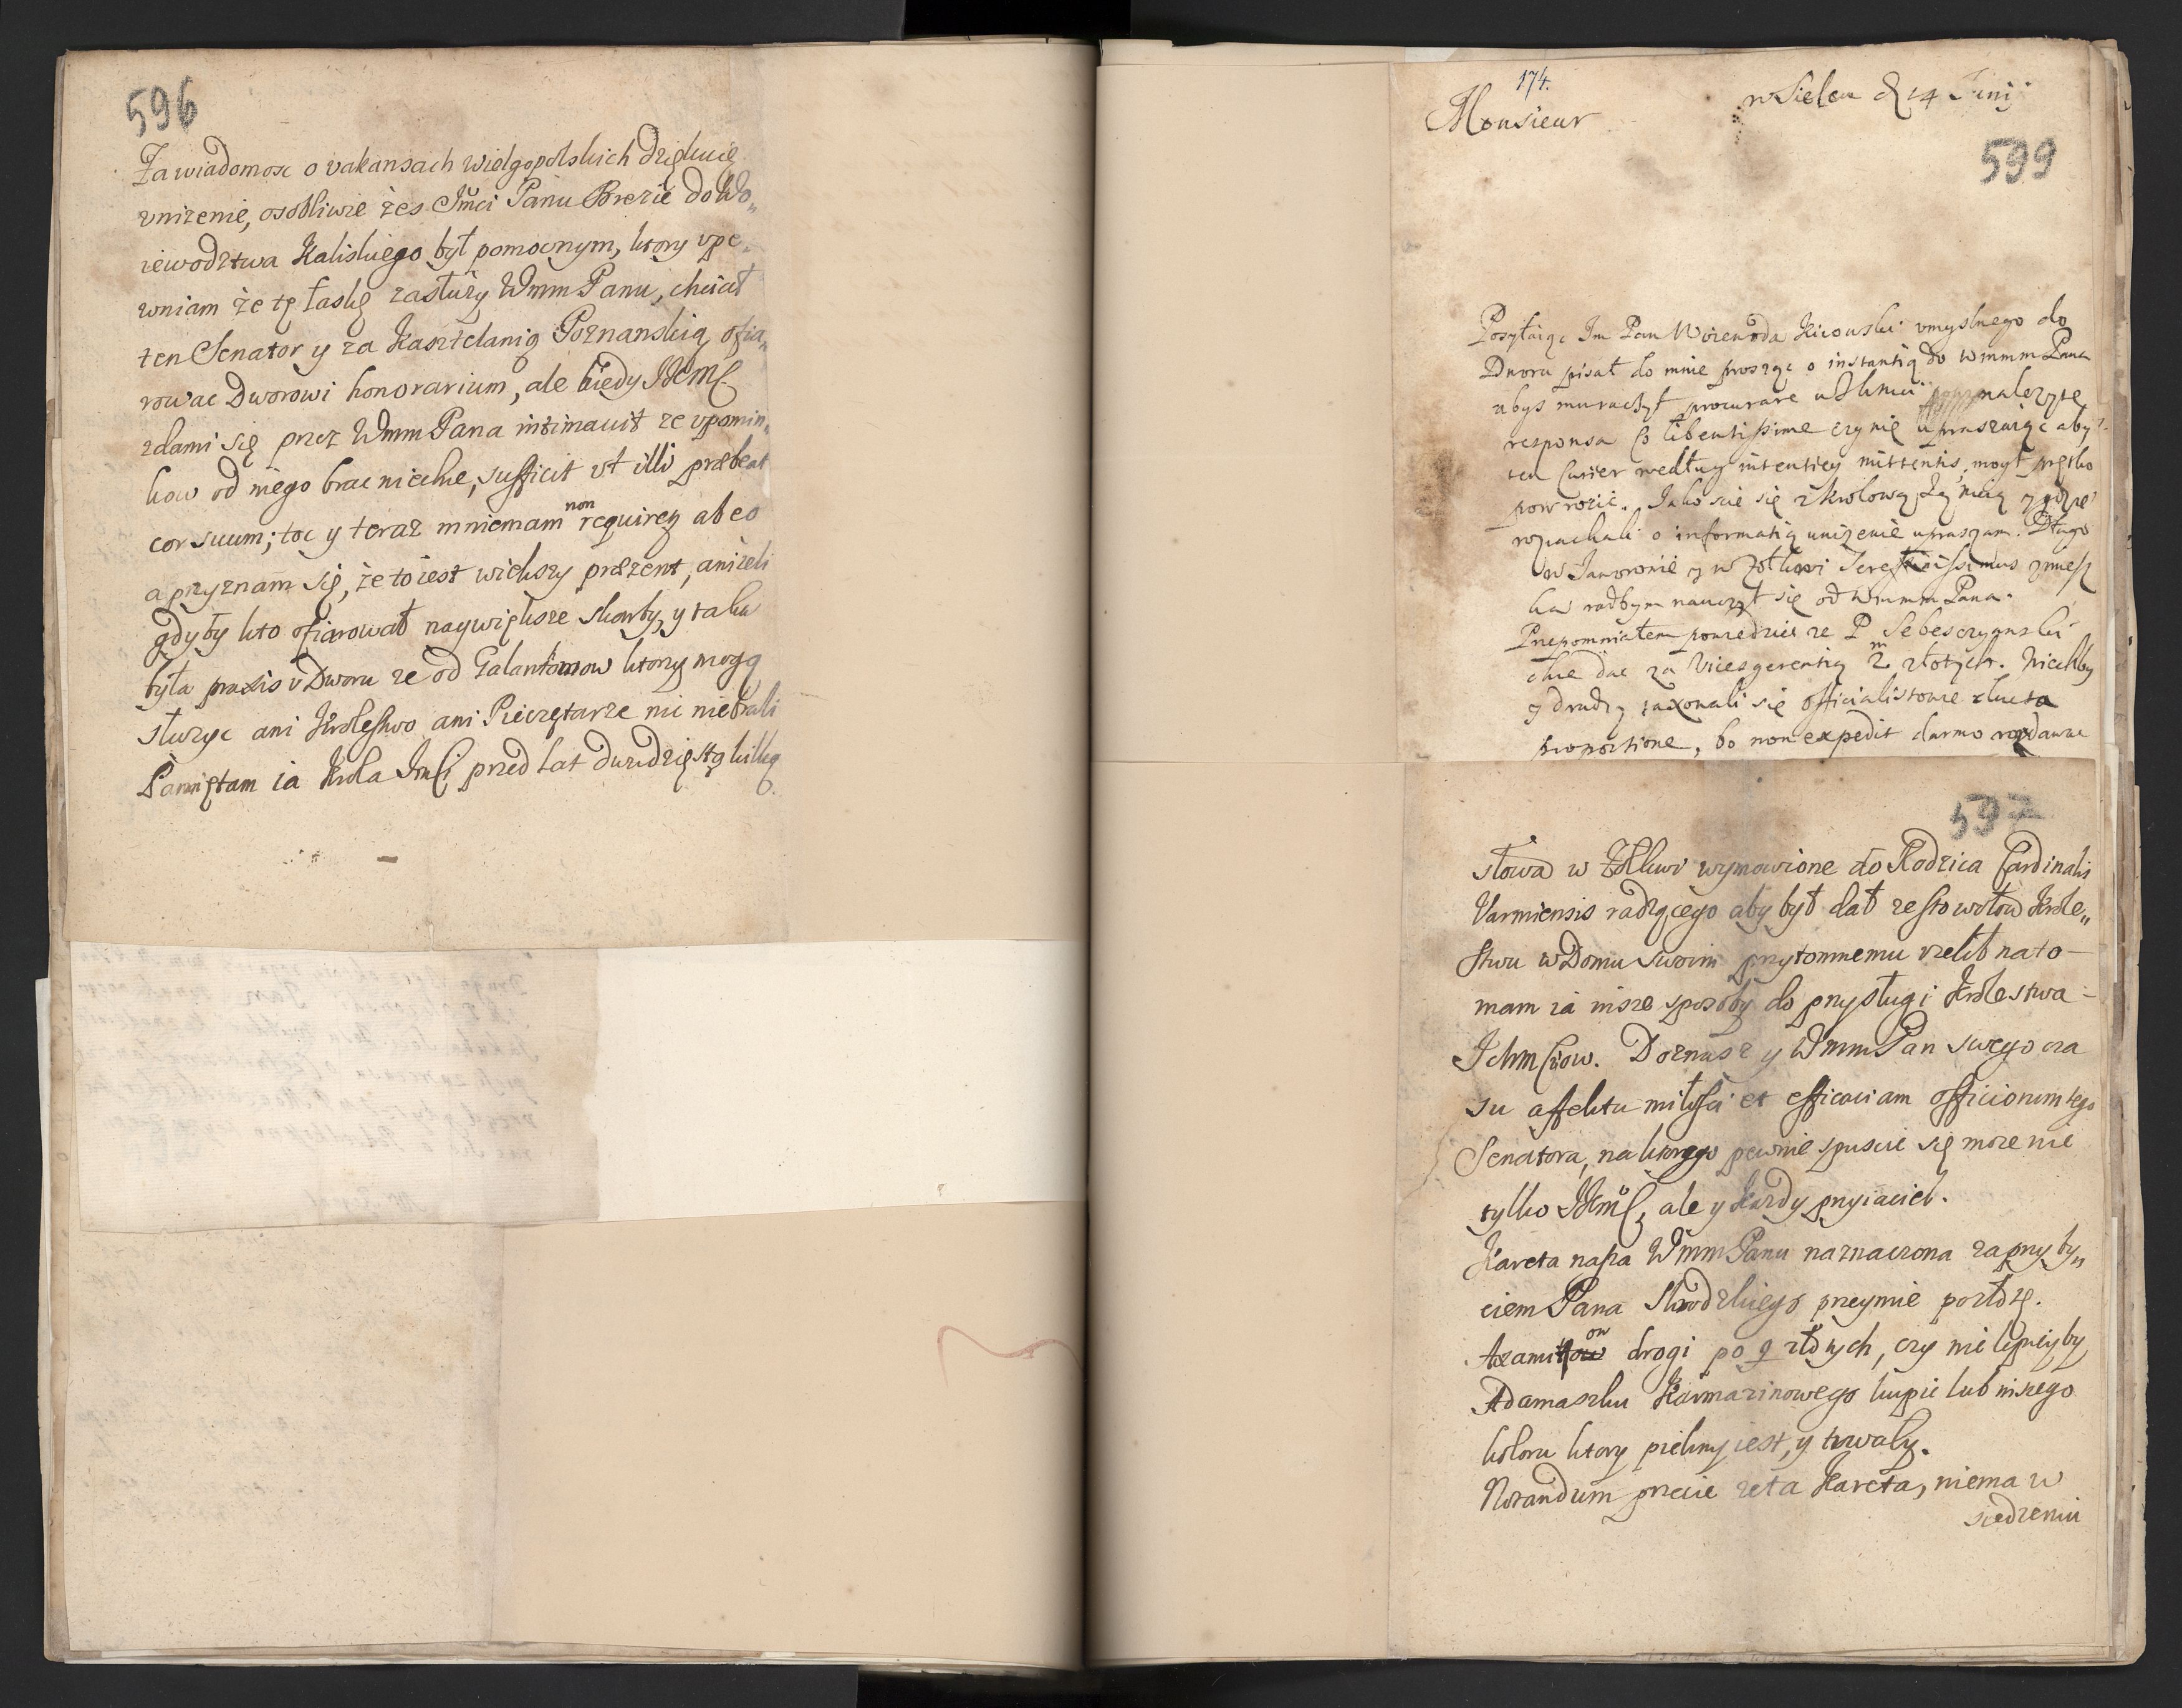 596
Za wiadomosc o vakansach wielgopolskich dziękuię
vnizenie, osobliwie żes Jmci Panu Brezie do Wo„
iewodztwa Kaliskiego był pomocnym, ktory vpe„
wniam że tę łaskę zasłuży WmmPanu, chciał
ten Senator y za Kasztelanią Poznanską ofia„
rowac Dworowi honorarium, ale kiedy JKMć
zdami się przez WmmPana intimavit ze vpomin„
kow od niego brac niechce, sufficit vt illi præbeat
cor suum; toc y teraz mniemam non requirez ab eo
a przyznam się, że to iest wiekszy præzent, anizeli
gdyby kto ofiarował naywiększe skarby, y taka
była praxis v Dworu ze od Galantomow ktorzy mogą
służyc ani Krolestwo ani Pieczętarze nic niebrali
Pamiętam ia Krola Jmći przed lat dwudziestą kilką
174.
Monsieur
w Sielcu d 14 Junij
599
Posyłaiąc Im Pan Woiewoda Kiiowski vmyslnego do
Dworu pisał do mnie prosząc o instantią do wmmm Pana
abys mu raczył procurare u JKmci należyte
responsa Co libentissime czynię upraszaiąc aby
ten Curier według intentiey mittentis, mogł prętko
powrocic. Jako scie się z Krolową Jey mcią
rozjachali o informatią unizenie upraszam. Długo
w Jaworowie y w Zołkwi Serenissimus zmiesz
ka radbym nauczył się od Wmmm Pana.
Przepomniałem powiedziec ze P Sebesczynski
chce dac za Vicesgerentią 2 m złotych. Niechby
y drudzy taxowali się officialistowie
proportione, bo non expedit darmo rozdawac
597
słowa w Żołkwi wymowione do Rodzica Cardinalis
Varmiensis radzącego aby był dał ze sto wołow Krole„
stwu w Domu swoim przytomnemu rzekł na to –
mam ia insze sposoby do przysługi Krolestwa –
Ichmściow. Doznasz y WmmPan swego cza
su affektu miłości et efficaciam officiorum tego
Senatora, na ktorego pewnie spuscic się może nie
tylko JKmć, ale y każdy przyiaciel.
Kareta nasza WmmPanu naznaczona za przyby„
ciem Pana Skrodzkiego przeymie pozłotę.
Axamit on drogi po 9 złotych, czy nie lepieyby
Adamaszku Karmazinowego kupic lub inszego
koloru ktory piekny iest, y trwały.
Notandum przecie ze ta Kareta, niema w
siedzeniu